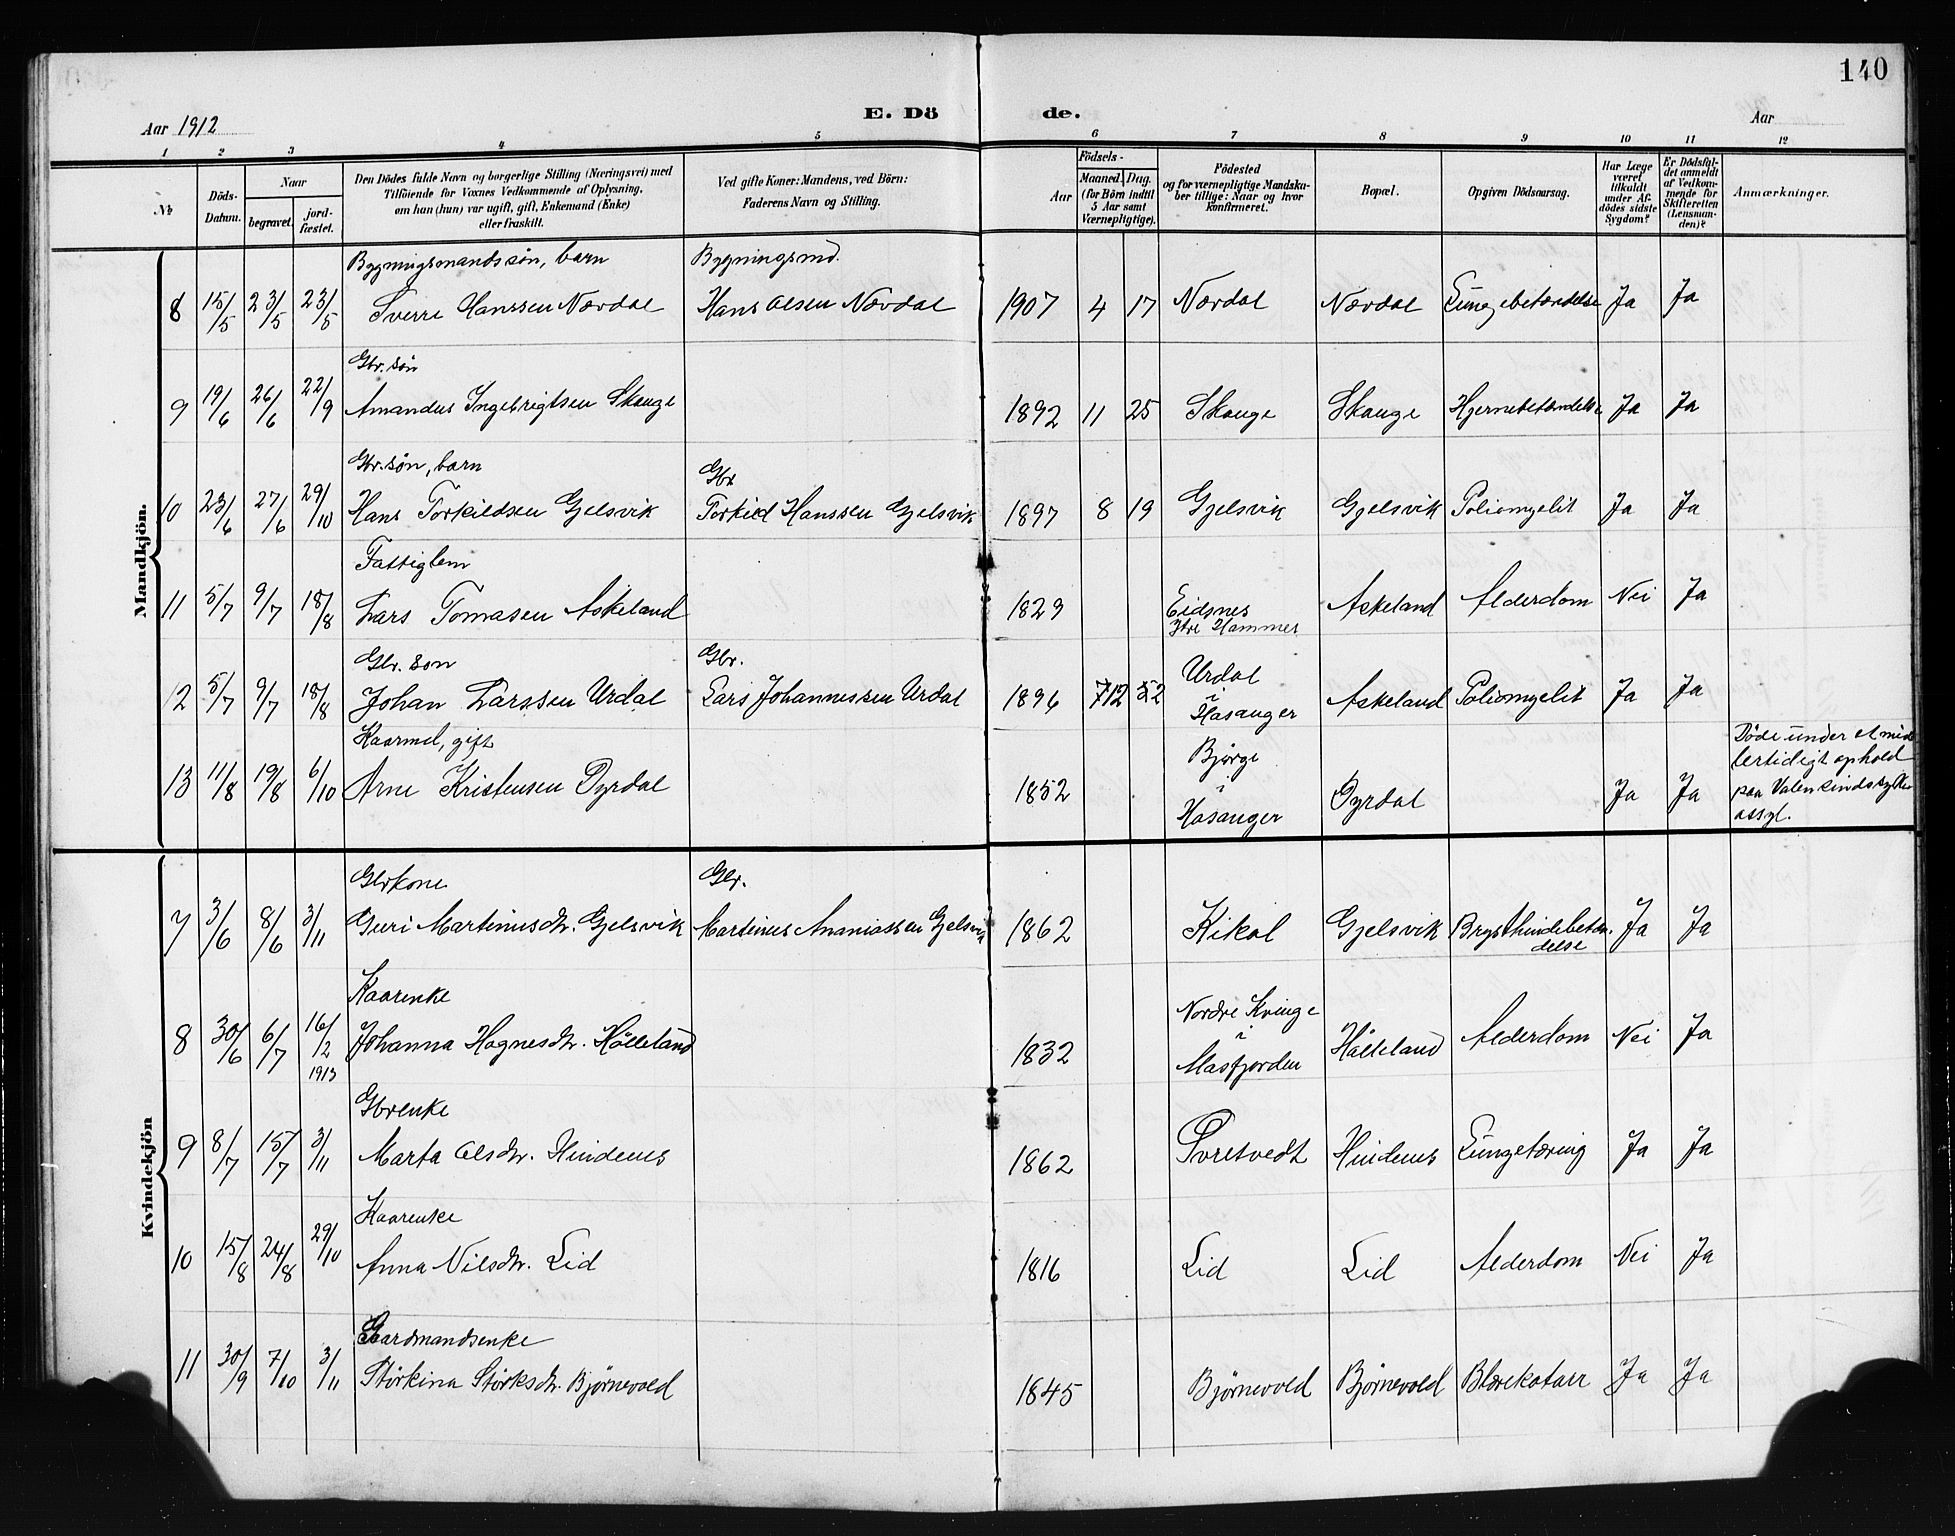 140
E. Dö de.
Aar 1912
Aar
1 2 3 4 5 6 7 8 9 10 11 12
No
Döds-Datum.
Naar
begravet.
jord-fæstet.
Den Dödes fulde Navn og borgerlige Stilling (Næringsvei) med
Tilföiende for Voxnes Vedkommende af Oplysning,
om han (hun) var ugift, gift, Enkemand (Enke)
eller fraskilt.
Ved gifte Koner: Mandens, ved Börn:
Faderens Navn og Stilling.
Födsels-
Aar
Maaned. Dag.
(for Börn indtil
5 Aar samt
Værnepligtige).
Födested
og for værnepligtige Mandska-
ber tillige: Naar og hvor
konfirmeret.
Bopæl.
Opgiven Dödsaarsag.
Har Læge
været
tilkaldt
under Af-
dödes sidste
Sygdom?
Er Dödsfal-
det anmeldt
af Vedkom-
mende for
Skifteretten
(Lensman-
den)?
Anmærkninger.
Mandkjön.
Bygningsmandssön, barn Bygningsmd.
8 15/5 23/5 23/5 Sverre Hanssen Nævdal Hans Olsen Nævdal 1907 4 17 Nævdal Nævdal Lungebetændelse Ja Ja
Gbr. sön
9 19/6 26/6 22/9 Amandus Ingebrigtsen Skauge 1892 11 25 Skauge Skauge Hjernebetændelse Ja Ja
Gbr. søn, barn Gbr
10 23/6 27/6 29/10 Hans Torkildsen Gjelsvik Torkild Hanssen Gjelsvik 1897 8 19 Gjelsvik Gjelsvik Poliomyelit Ja Ja
Fattiglem
11 5/7 9/7 18/8 Lars Tomasen Askeland 1829 Eidsnes Askeland Alderdom Nei Ja
Ytre Hammer
Gbr. son Gbr.
12 5/7 9/7 18/8 Johan Larssen Urdal Lars Johannessen Urdal 1896 12 2 Urdal Askeland Poliomyelit Ja Ja
i
Hosanger
Kaarmd, gift
13 11/8 19/8 6/10 Arne Kristensen Dyrdal 1852 Bjørge Dyrdal Ja Ja
i
Hosanger
Döde under et mid
lertidigt ophold
paa Valen sindssyke
assyl.
Kvindekjön
Gbrkone Gbr.
7 3/6 8/6 3/11 Guri Martinusdtr. Gjelsvik Martinus Ananiassen Gjelsvik 1862 Kikal Gjelsvik Brysthindebetæn- Ja Ja
delse
Kaarenke
8 30/6 6/7 16/2 Johanna Hognesdtr. Hålleland 1832 Nordre Kvinge Hålleland Alderdom Nei Ja
1913 i
Masfjorden
Gbrenke
9 8/7 15/7 3/11 Marta Olsdtr. Hindenes 1862 Tvetvedt Hindenes Lungetæring Ja Ja
Kaarenke
10 15/8 24/8 29/10 Anna Nilsdtr. Lid 1816 Lid Lid Alderdom Nei Ja
Gaardmandsenke
11 30/9 7/10 3/11 Störkina Störksdtr. Bjørnevold 1845 Bjørnevold Bjørnevold Blærekatarr Ja Ja